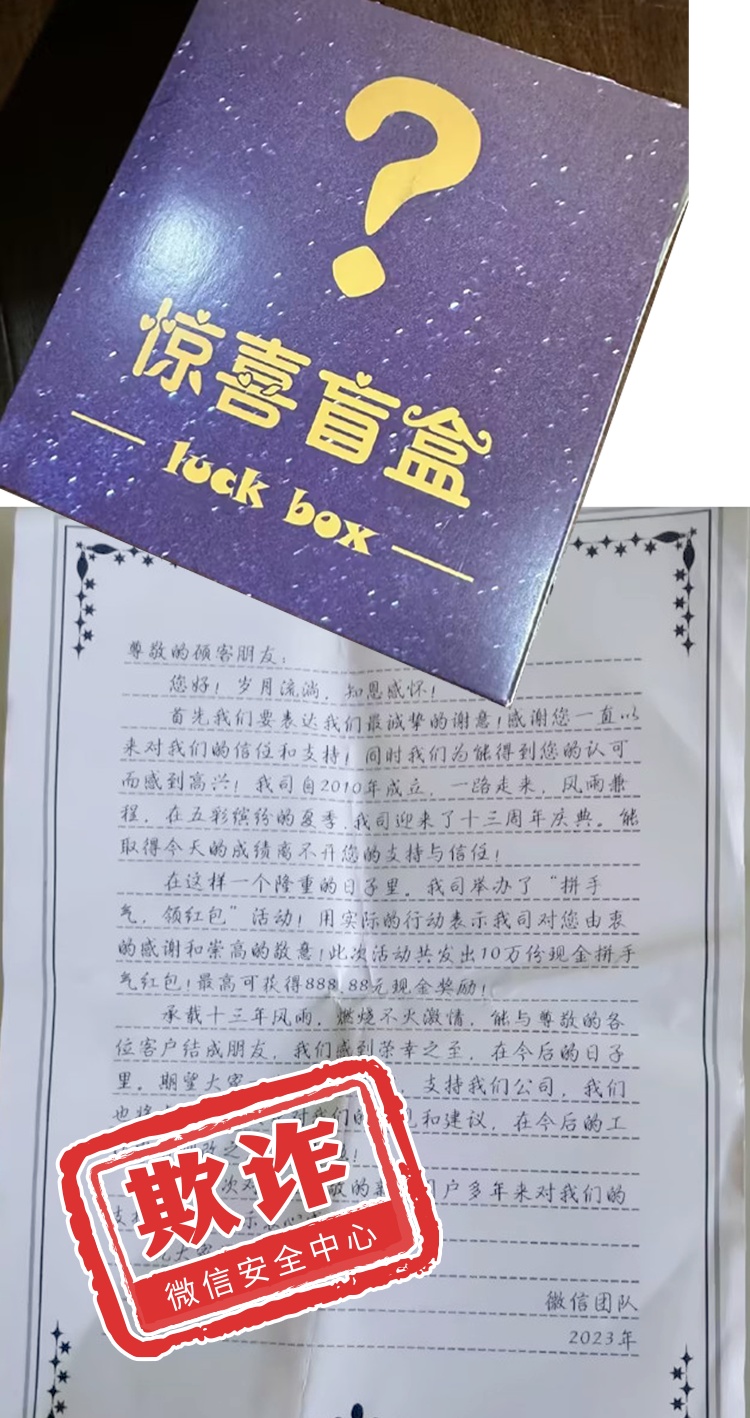 ?
惊喜盲盒
luck box
尊敬的顾客朋友：
您好！岁月流淌，知恩感怀！
首先我们要表达我们最诚挚的谢意！感谢您一直以
来对我们的信任和支持！同时我们为能得到您的认可
而感到高兴！我司自2010年成立，一路走来，风雨兼
程，在五彩缤纷的夏季，我司迎来了十三周年庆典。能
取得今天的成绩离不开您的支持与信任！
在这样一个隆重的日子里。我司举办了“拼手
气，领红包”活动！用实际的行动表示我司对您由衷
的感谢和崇高的敬意！此次活动共发出10万份现金拼手
气红包！最高可获得888.88元现金奖励！
承载十三年风雨，燃烧不火激情，能与尊敬的各
位客户结成朋友，我们感到荣幸之至，在今后的日子
里。期望大家 支持我们公司，我们
也 对我们的 和建议，在今后的工
次对 的 户多年来对我们的
欺诈
微信安全中心
微信团队
2023年